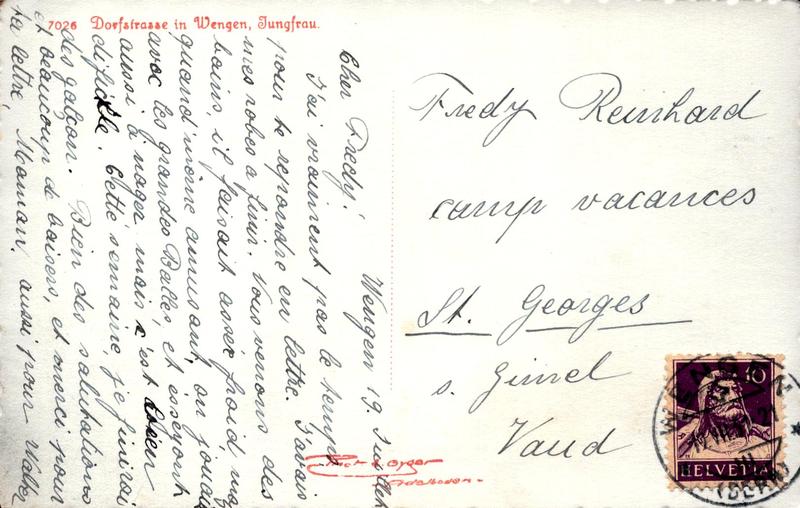 7026 Dorfstrasse in Wengen, Jungfrau.
Wengen 19. Juillet
Cher Fredy!
J'ai vraiment pas le temps
pour te repondre en lettre. J'avais
mes robes a finir. Nous venons des
bains, il faisait assez froid, mais
quand même amusant, on jouait
avec les grandes Balles, et essayent
aussi à nager, mais c'est bien
dificile. Cette semaine, je finirai
des gaţcon. Bien des salutations
et beaucoup de baisers, et merci pour
ta lettre, Maman, aussi pour Walter
Fredy Reinhard
camp vacances
St. Georges
s. Gimel
Vaud
10
HELVETIA
WENGEN
(BERN)
Gyger
Adelboden